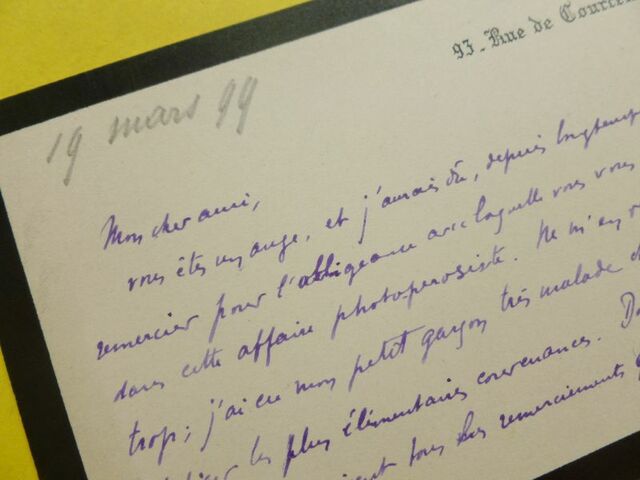 93-Rue de
19 mars 99
Mon cher ami,
vous êtes un ange, et j'aurais dû, depuis longtemps
remercier pour l'obligeance avec laquelle vous vous
dans cette affaire . Ne m'en
trop; j'ai eu mon petit garçon très malade
les plus élémentaires convenances.
tous les remerciements